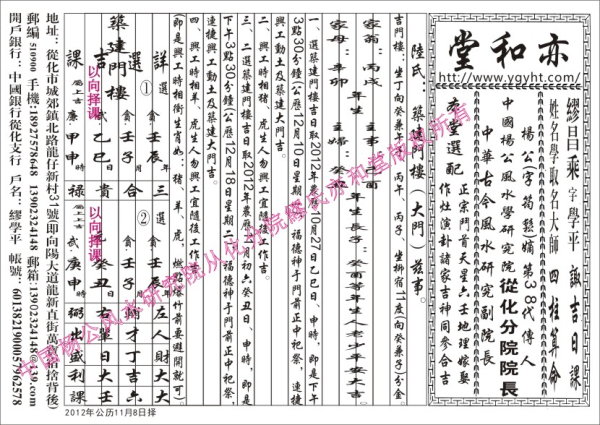 亦和堂
http://www.ygyht.com/
繆昌乘 字學平 諏吉日課
姓名學取名大師 四柱算命
楊公字筠鬆嫡第38代傳人
中國楊公風水學研究院從化分院院長
中華古今風水研究副院長
亦堂選配
正宗鬥首天星六壬地理嫁娶
作灶演卦諸家吉神同參合吉
陸氏：築建門樓（大門）茲事。
吉門樓：坐丁向癸兼午、丙午、丙子、坐柳宿11度向癸兼子）分金。
家翁：丙戌年生 主事：己酉
家母：辛卯年生 主婦：
年生長子：癸酉等年生人老少年安大吉。
一、選築建門樓吉日取2012年農曆10月27日乙巳日、申時，即是下午
3點30分鐘（公曆12月10日星期一，福德神于門前正中祀祭，
興工動土及築建大門吉。
二、興工時相豬、虎生人勿興工宜隨後工作吉。
三、二選築建門樓吉日取2012年農曆11月初六癸丑日、申時，即是
下午3點30分鐘（公曆12月18日星期二，福德神于門前正中祀祭，
連捷興工動土及築建大門吉。
四、興工時相羊、虎生人勿興工宜隨後工作吉。
(即是興工時相衝生肖如：豬、羊、虎，燃點塔竹前要避開就可)。
詳選築建門樓吉課
① 選 貪壬辰年 貪壬子月 貳乙巳日 廉甲申時
以向择课
屬上吉
祿貴合
② 貪壬辰年 貪壬子月 癸丑日 庚申時
以向择课
屬上吉
左人財大詳
輔才丁吉六
右單日大壬
弼出盛利課
地址：從化市城郊鎮北路龍仔新村31號即向陽大道龍新直街萬
郵編510900 手機:18927578448 13902324148 郵箱:13902324148@139.com
開戶銀行：中國銀行從化支行 戶名：繆學平 帳號：6013821900057962578
2012年公历11月8日择
中國楊公風水研究院从化分院繆亦和堂版权所有